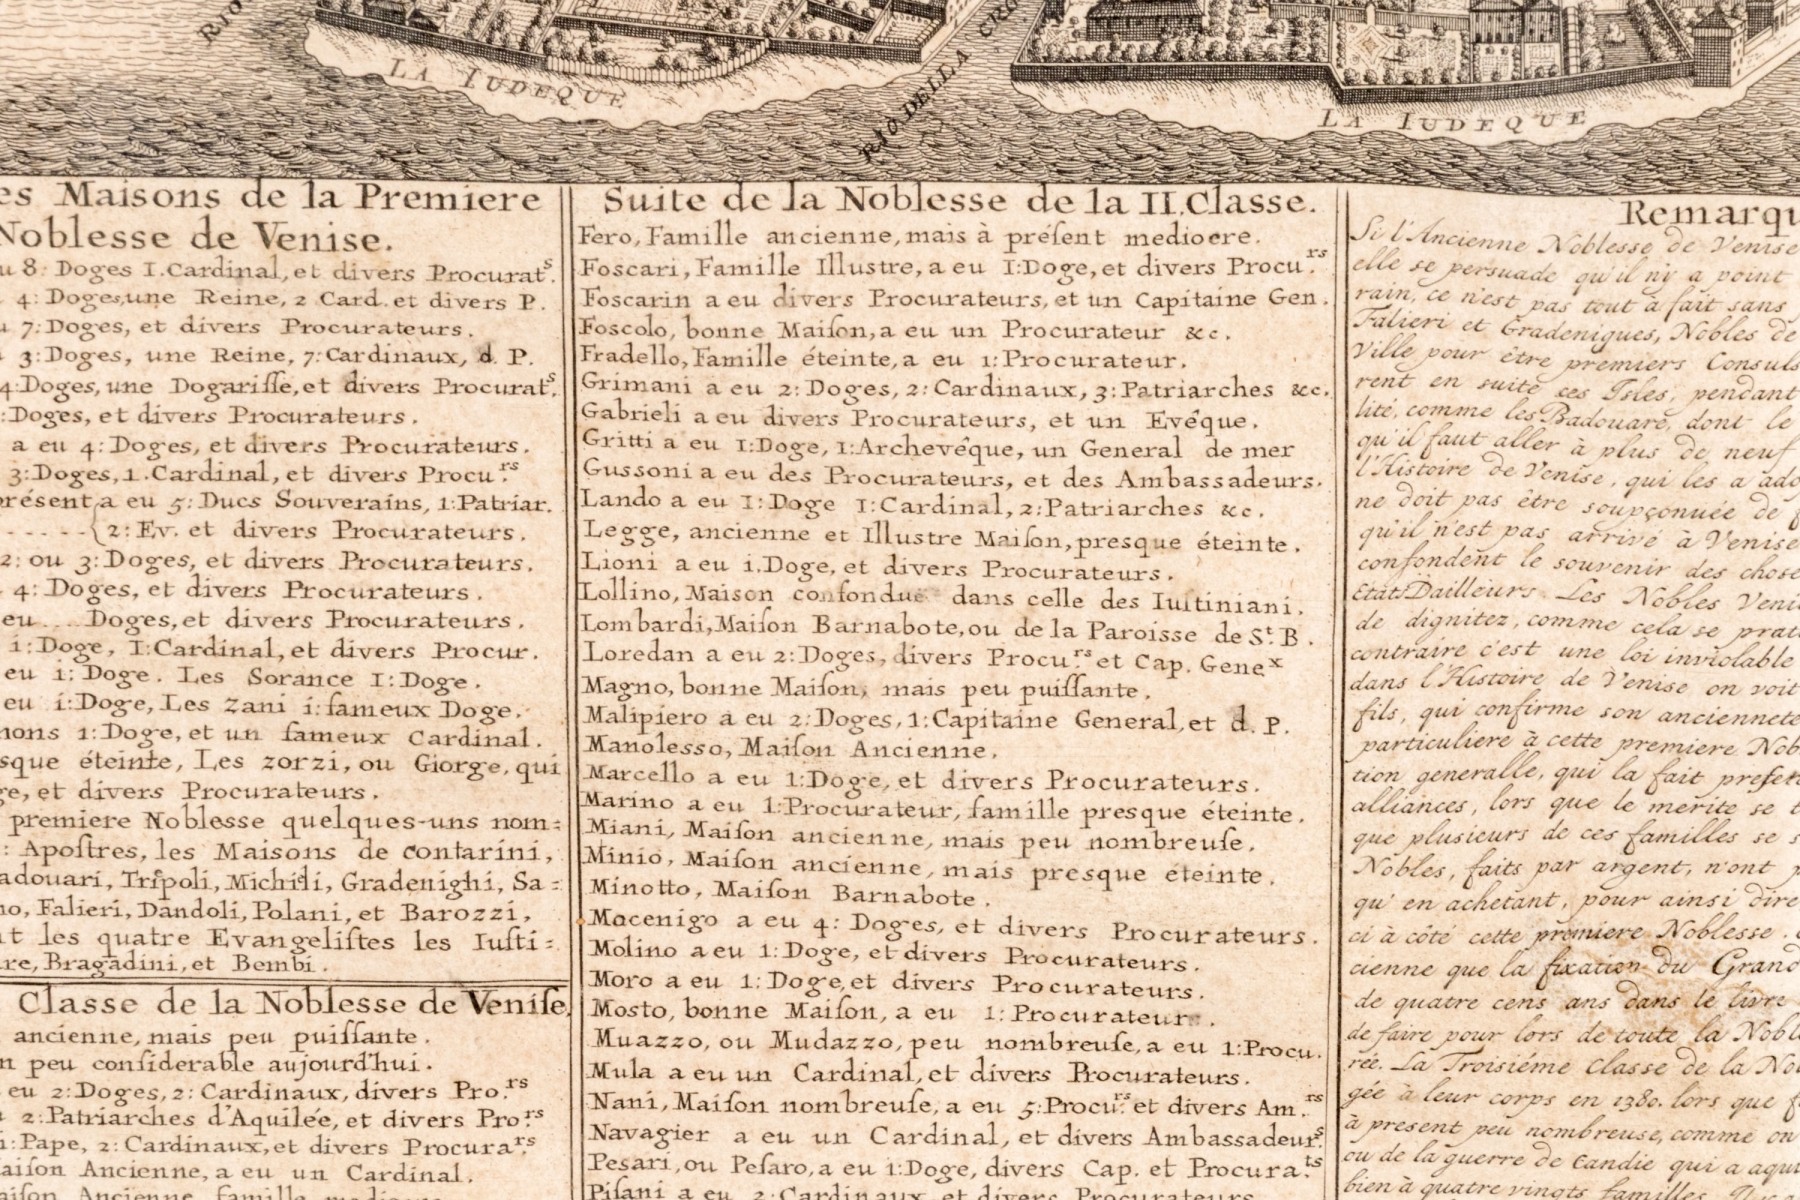 RIO
LA IUDEQUE
RIO DELLA CRO
LA IUDEQUE
es Maisons de la Premiere
Noblesse de Venise.
u 8: Doges 1.Cardinal, et divers Procurat.s
4: Doges, une Reine, 2 Card. et divers P.
u 7: Doges, et divers Procurateurs.
3: Doges, une Reine, 7: Cardinaux, d. P.
4: Doges, une Dogarisſe, et divers Procurat.s
: Doges, et divers Procurateurs.
a eu 4: Doges, et divers Procurateurs.
3: Doges, 1. Cardinal, et divers Procu.rs
présent a eu 5: Ducs Souverains, 1: Patriar.
2: Ev. et divers Procurateurs.
2: ou 3: Doges, et divers Procurateurs.
4: Doges, et divers Procurateurs.
eu ... Doges, et divers Procurateurs.
1: Doge, 1: Cardinal, et divers Procur.
eu 1: Doge. Les Sorance 1: Doge.
eu 1: Doge, Les Zani 1: fameux Doge.
mons 1: Doge, et un fameux Cardinal.
sque éteinte, Les zorzi, ou Giorge, qui
ge, et divers Procurateurs.
premiere Noblesse quelques-uns nom=
: Apoſtres, les Maisons de Contarini,
adouari, Tripoli, Michili, Gradenighi, Sa=
no, Falieri, Dandoli, Polani, et Barozzi,
nt les quatre Evangeliſtes les Iuſti=
re, Bragadini, et Bembi.
Classe de la Noblesse de Veniſe.
ancienne, mais peu puiſſante.
n peu conſiderable aujourd'hui.
eu 2: Doges, 2: Cardinaux, divers Pro.rs
2: Patriarches d'Aquilée, et divers Pro.rs
1: Pape, 2: Cardinaux, et divers Procura.rs
aiſon Ancienne, a eu un Cardinal.
aiſon Ancienne, famille mediocre
Suite de la Noblesse de la II. Classe.
Fero, Famille ancienne, mais à préſent mediocre.
Foscari, Famille Illustre, a eu 1: Doge, et divers Procu.rs
Foscarin a eu divers Procurateurs, et un Capitaine Gen.
Foscolo, bonne Maiſon, a eu un Procurateur &c.
Fradello, Famille éteinte, a eu 1: Procurateur.
Grimani a eu 2: Doges, 2: Cardinaux, 3: Patriarches &c.
Gabrieli a eu divers Procurateurs, et un Evêque.
Gritti a eu 1: Doge, 1: Archevêque, un General de mer
Gussoni a eu des Procurateurs, et des Ambassadeurs.
Lando a eu 1: Doge 1: Cardinal, 2: Patriarches &c.
Legge, ancienne et Illustre Maiſon, presque éteinte.
Lioni a eu 1. Doge, et divers Procurateurs.
Lollino, Maison confondue dans celle des Iuſtiniani.
Lombardi, Maiſon Barnabote, ou de la Paroisse de St. B.
Loredan a eu 2: Doges, divers Procu.rs et Cap. Genex
Magno, bonne Maiſon, mais peu puiſſante.
Malipiero a eu 2: Doges, 1: Capitaine General, et d. P.
Manolesso, Maiſon Ancienne.
Marcello a eu 1: Doge, et divers Procurateurs.
Marino a eu 1: Procurateur, famille presque éteinte.
Miani, Maiſon ancienne, mais peu nombreuſe.
Minio, Maiſon ancienne, mais presque éteinte.
Minotto, Maiſon Barnabote.
Mocenigo a eu 4: Doges, et divers Procurateurs.
Molino a eu 1: Doge, et divers Procurateurs.
Moro a eu 1: Doge, et divers Procurateurs.
Mosto, bonne Maiſon, a eu 1: Procurateur.
Muazzo, ou Mudazzo, peu nombreuſe, a eu 1: Procu.
Mula a eu un Cardinal, et divers Procurateurs.
Nani, Maiſon nombreuſe, a eu 5: Procu.rs et divers Am.rs
Navagier a eu un Cardinal, et divers Ambassadeur.s
Pesari, ou Peſaro, a eu 1: Doge, divers Cap. et Procura.ts
Piſani a eu 2: Cardinaux, et divers Procurateurs
Remarqu
Si l'Ancienne Noblesse de Venise
elle se persuade qu'il n'y a point
rain, ce n'est pas tout à fait sans
Falieri et Gradenigues, Nobles de
Ville pour être premiers Consuls
rent en suite ces Isles, pendant
lité, comme les Badouare, dont le
qu'il faut aller à plus de neuf
l'Histoire de Venise, qui les a ado
ne doit pas être soupçonuée de f
qu'il n'est pas arrivé à Venise
confondent le souvenir des chose
Etats Dailleurs. Les Nobles Veni
de dignitez, comme cela se prat
contraire c'est une loi inviolable
dans l'Histoire de Venise on voit
fils, qui confirme son ancienneté
particuliere à cette premiere Nob
tion generalle, qui la fait prefer
alliances, lors que le merite se t
que plusieurs de ces familles se s
Nobles, faits par argent, n'ont p
qu'en achetant, pour ainsi dire
ci à côté cette premiere Noblesse.
cienne que la fixation du Grand
de quatre cens ans dans le livre
de faire pour lors de toute la Nobl
rée. La Troisiéme Classe de la No
gée à leur corps en 1380. lors que
à present peu nombreuse, comme on
ou de la guerre de Candie qui a aqui
bien à quatre vingts familles